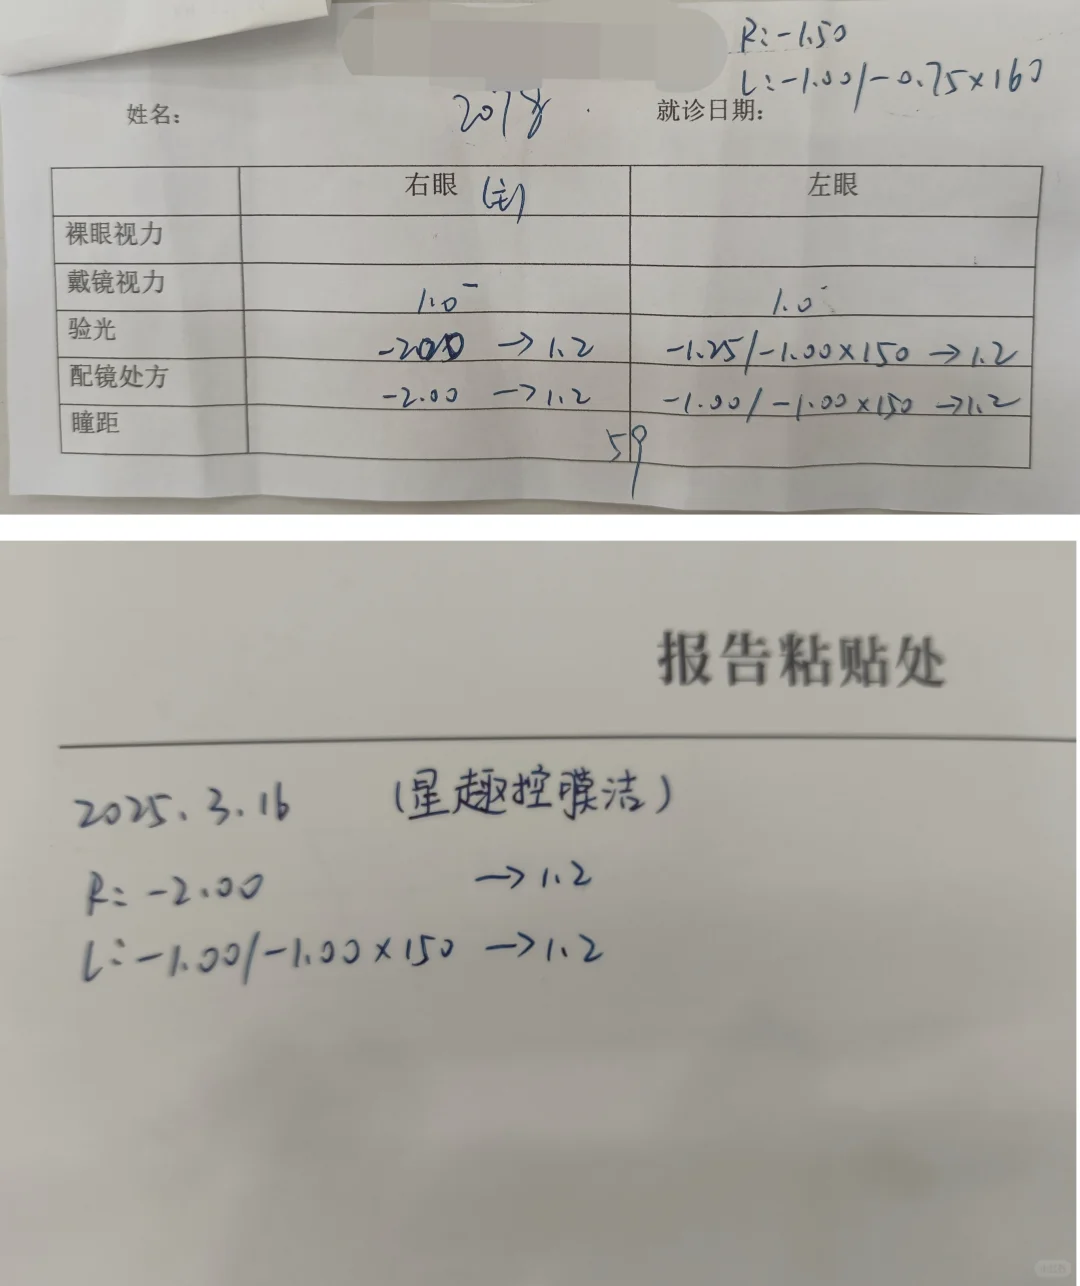 R:-1.50
L:-1.00/-0.75×160
姓名:
就诊日期:
右眼 (主) 左眼
裸眼视力
戴镜视力 1.0⁻ 1.0⁻
验光 -2.00 →1.2 -1.25/-1.00×150 →1.2
配镜处方 -2.00 →1.2 -1.00/-1.00×150 →1.2
瞳距 59
报告粘贴处
2025.3.16 (星趣控膜洁)
R:-2.00 →1.2
L:-1.00/-1.00×150 →1.2